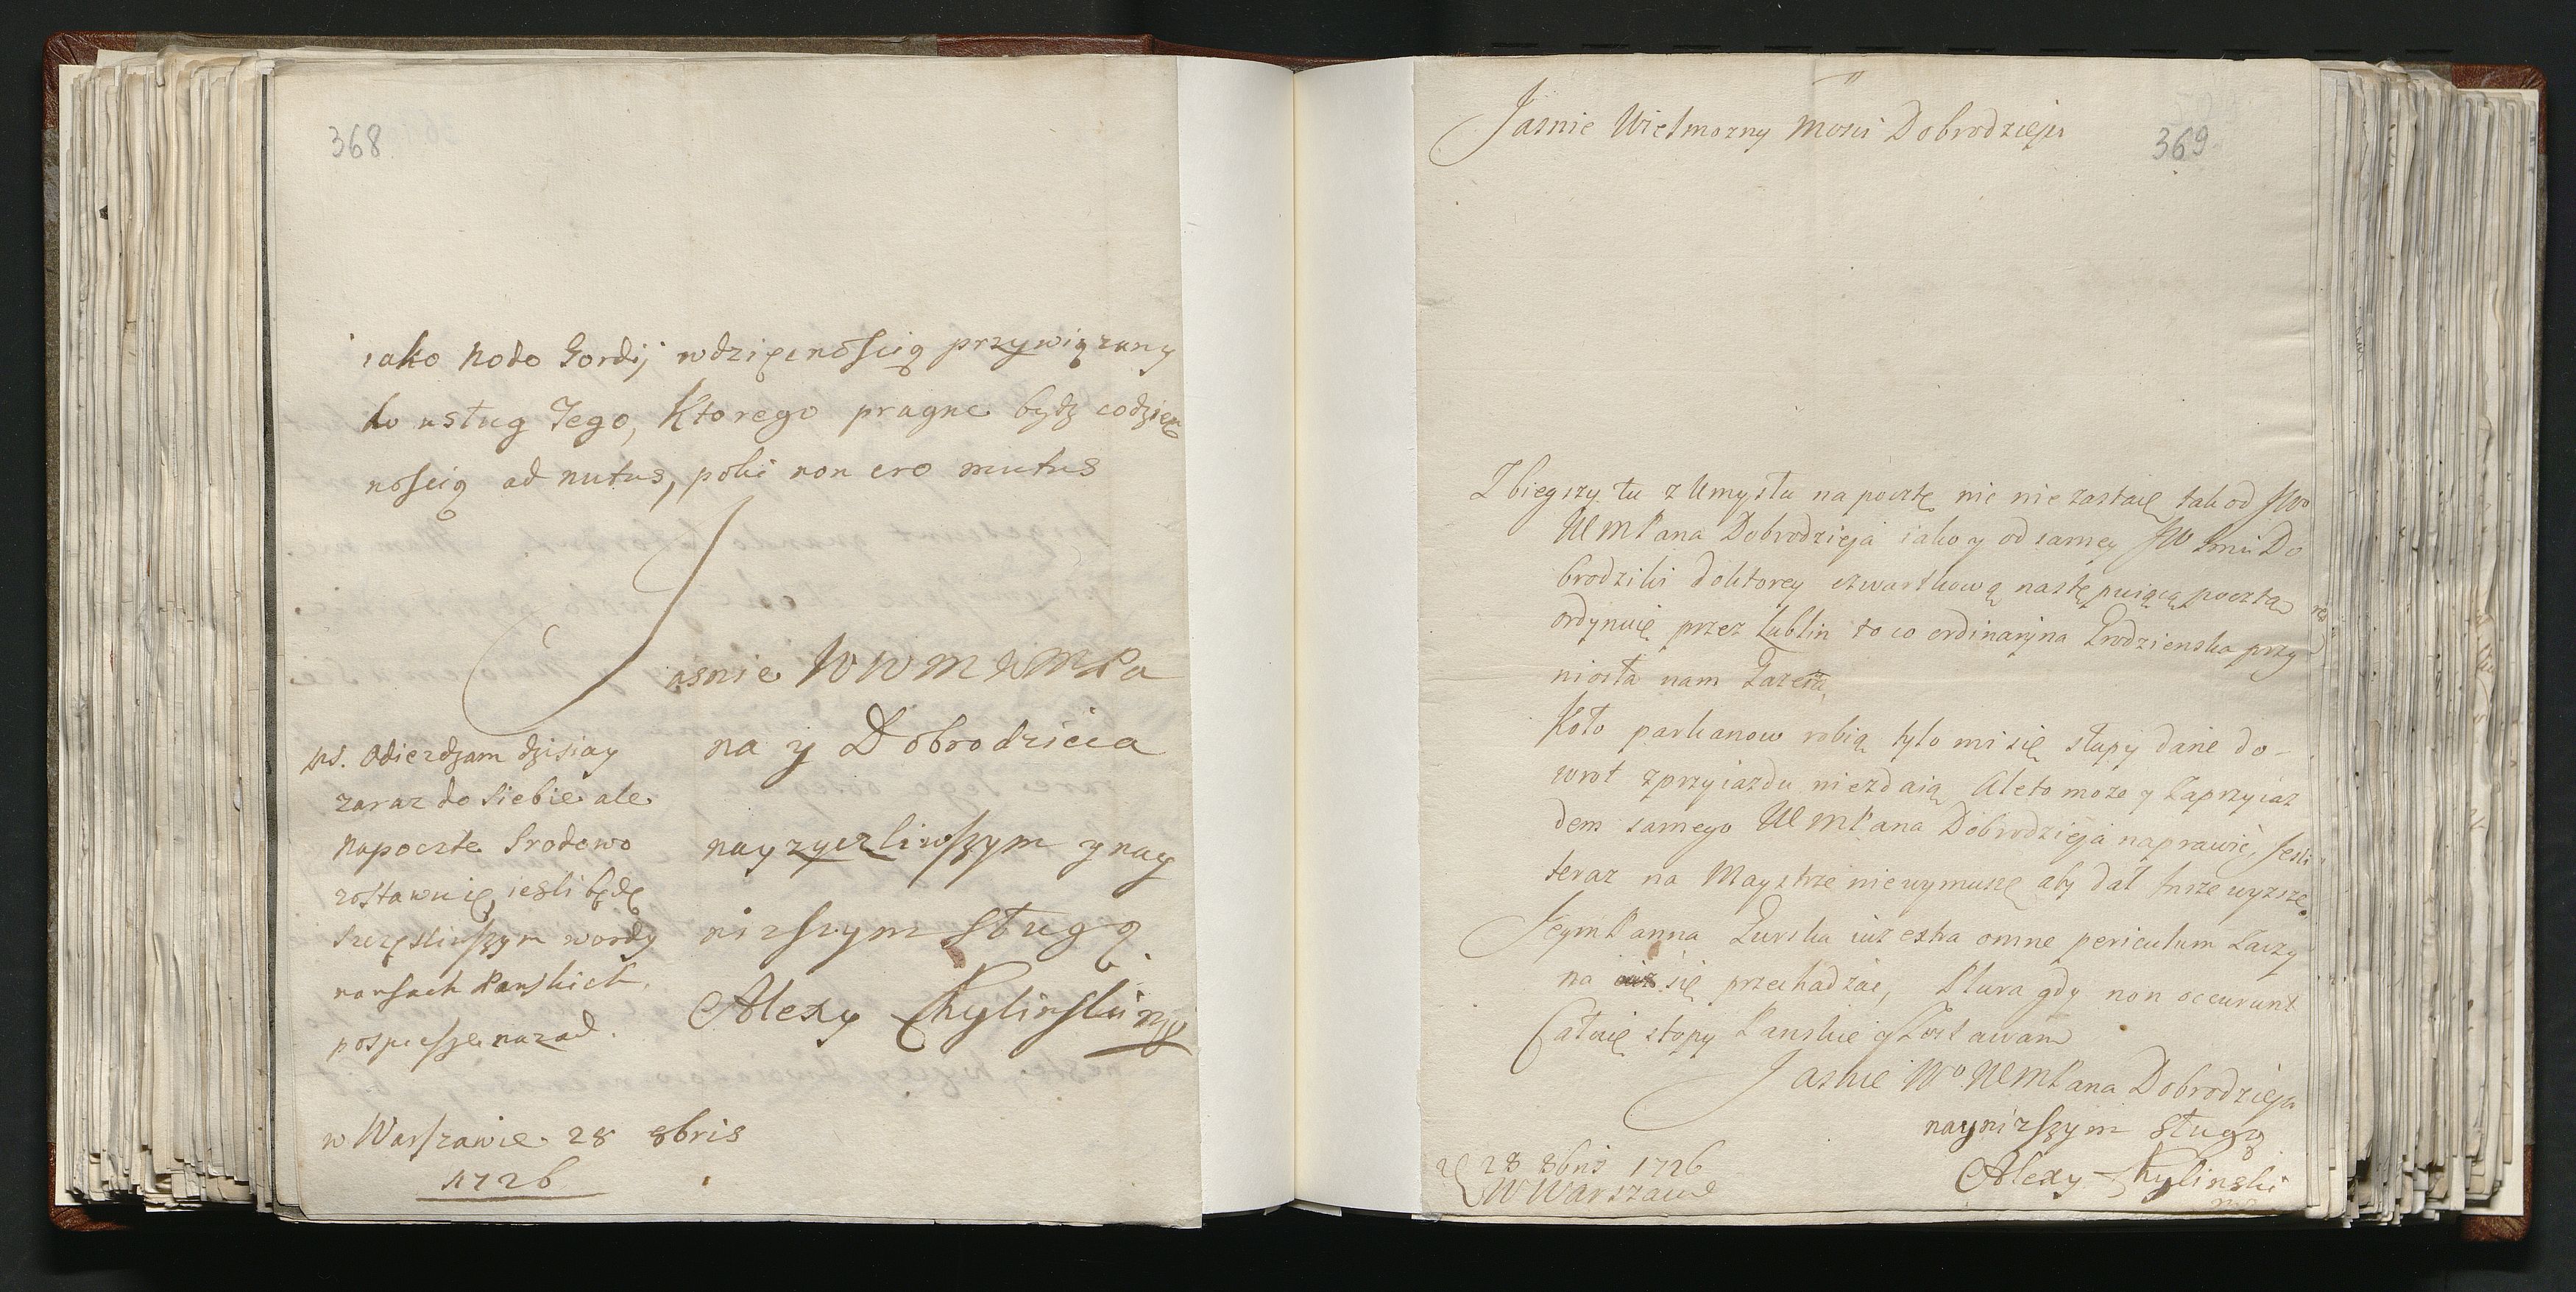 368
iako nodo Gordij wdzięcnością przywiązany
do usług Jego, Ktorego pragne bydz codzien
nością ad nutus, poki non ero mutus
Jasnie WWMWMPa
na y Dobrodzieia
nayzyczliwszym y nay
nizszym sługą
Alexy Chylinski mp
ps. Odiezdzam dzisiay
zaraz do siebie ale
napoczte Srodowo
zostawuię, iesli będę
szczęsliwszym wordy
nansach Panskich,
pospiesze nazad.
w Warszawie. 28 8bris
1726
369
Jasnie Wielmozny Mosci Dobrodzieju
Zbiegszy tu z Umysłu na pocztę nic nie zastaię tak od JWo
WMPana Dobrodzieja iako y od samey JW Jmci Do
brodziki doktorey czwartkową następuiącą pocztą
ordynuię przez Lublin to co ordinaryina Grodzienska przy
niosła nam Gazeta
Koło parkanow robią, tylo mi się słupy dane do-
wrot z przyiazdu niezdaią, Ale to moze y za przyiaz
dem samego WMPana Dobrodzieja naprawić, Jesli
teraz na Maystrze niewymuszę aby dał insze wyzsze.
JeymPanna Zurska iuz extra omne periculum Zaczy
na się przechadzac, Plura gdy non occurunt
Całuię stopy Panskie y Zostawam
Jasnie Wo WMPana Dobrodzieja
naynizszym sługą
Alexy Chylinski
mp
28 8bris 1726
W Warszawie